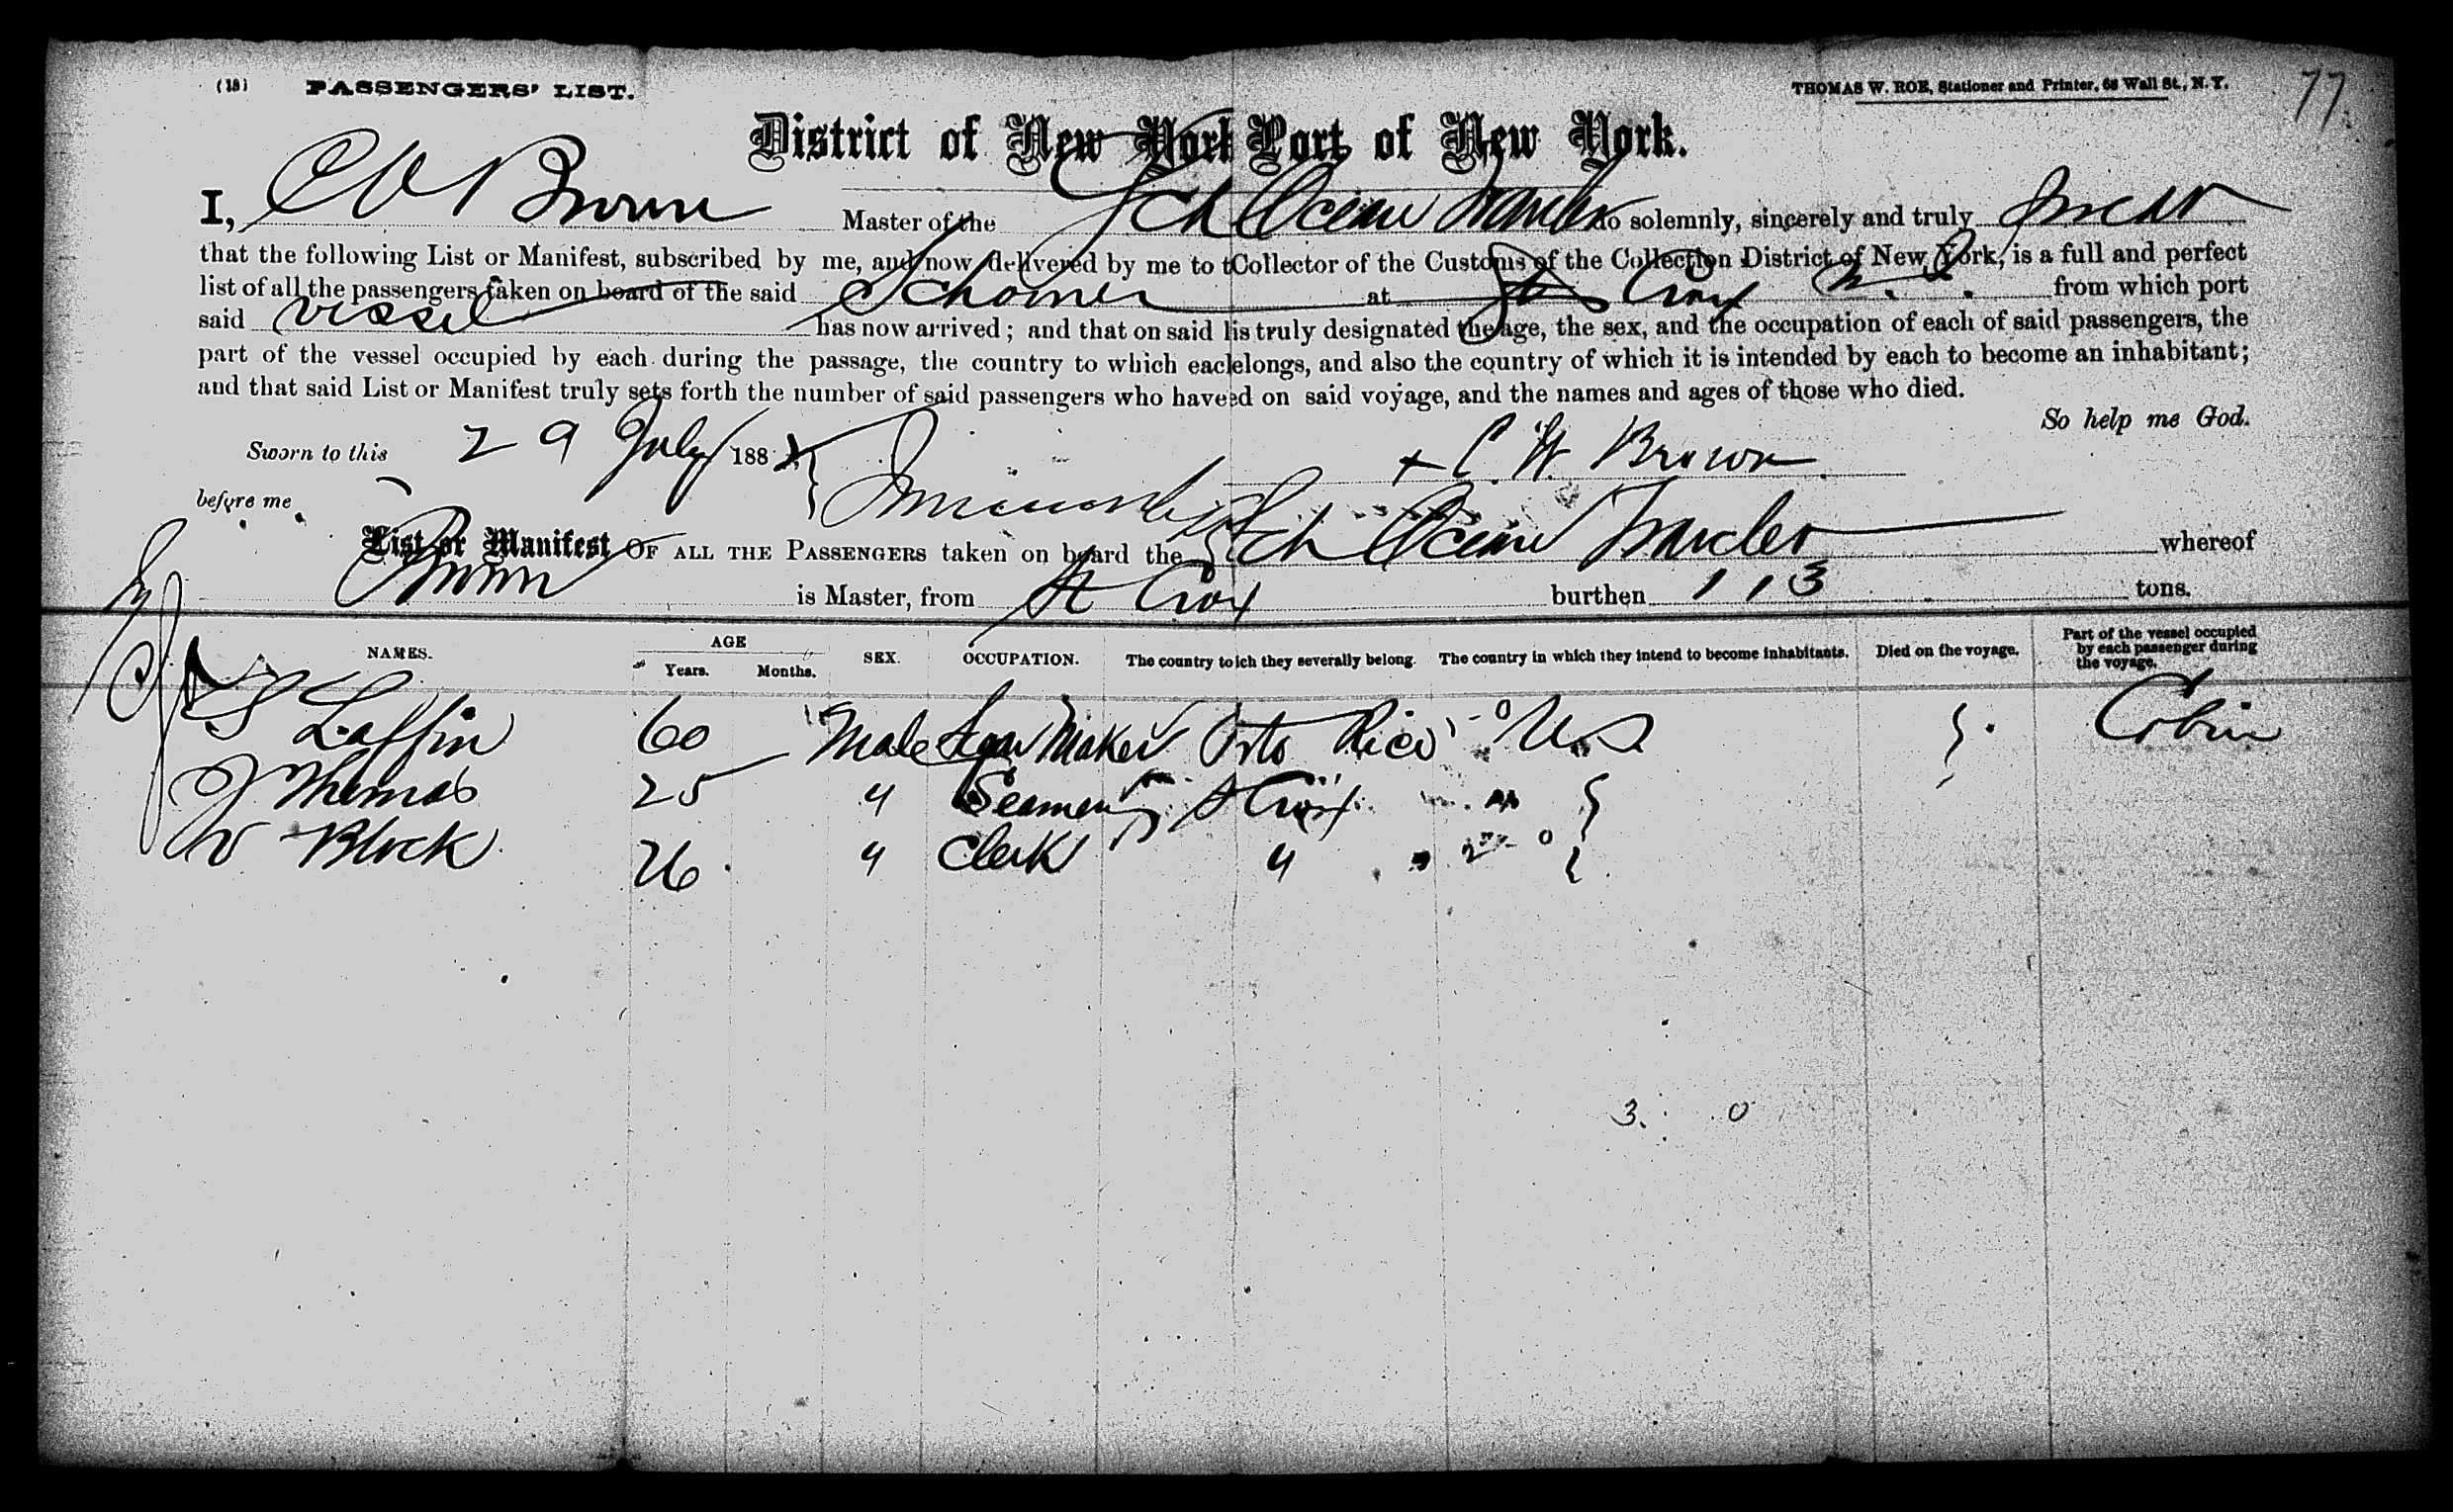 (18) PASSENGERS' LIST. THOMAS W. ROE, Stationer and Printer, 68 Wall St., N.Y. 77
District of New York Port of New York.
I, C W Brown Master of the Sch Ocean Traveler do solemnly, sincerely and truly swear
that the following List or Manifest, subscribed by me, and now delivered by me to t Collector of the Customs of the Collection District of New York, is a full and perfect
list of all the passengers taken on board of the said Schooner at St Croix from which port
said vessel has now arrived; and that on said lis truly designated the age, the sex, and the occupation of each of said passengers, the
part of the vessel occupied by each during the passage, the country to which eac elongs, and also the country of which it is intended by each to become an inhabitant;
and that said List or Manifest truly sets forth the number of said passengers who have ed on said voyage, and the names and ages of those who died.
So help me God.
Sworn to this 29 July 188 + C. W. Brown
before me
List or Manifest OF ALL THE PASSENGERS taken on board the Sch Ocean Traveler whereof
Brown is Master, from St Croix burthen 113 tons.
NAMES. AGE Years. Months. SEX. OCCUPATION. The country to ich they severally belong. The country in which they intend to become inhabitants. Died on the voyage. Part of the vessel occupied by each passenger during the voyage.
Laffin 60 Male Maker Porto Rico U.S Cabin
J Thomas 25 " Seaman St Croix "
W Block 26 " Clerk " "
3. 0